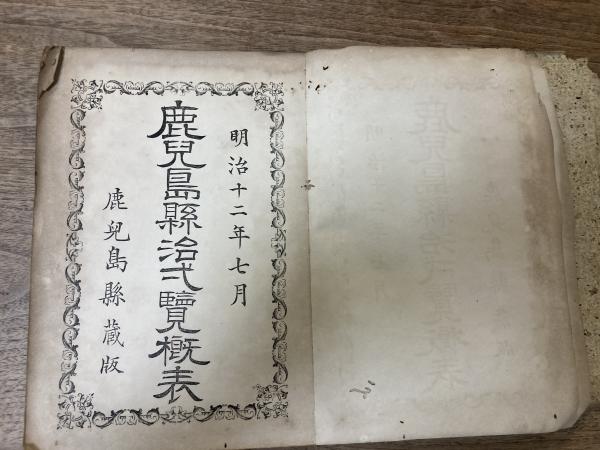 明治十二年七月
鹿兒島縣治弌覽槪表
鹿兒島縣藏版